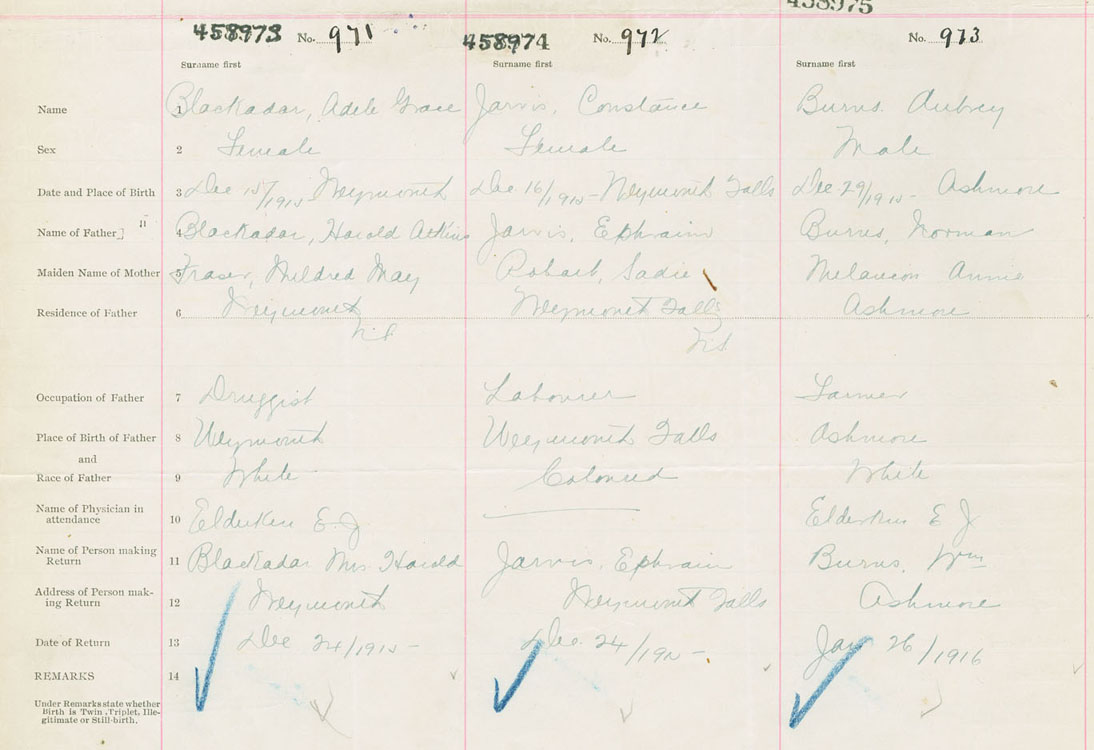 458975
458973 No. 971 458974 No. 972 No. 973
Surname first Surname first Surname first
Name 1 Blackadar, Adele Grace Jarvis, Constance Burns, Aubrey
Sex 2 Female Female Male
Date and Place of Birth 3 Dec 15/1915 Weymouth Dec 16/1915 - Weymouth Falls Dec 29/1915 - Ashmore
Name of Father] " 4 Blackadar, Harold Atkins Jarvis, Ephraim Burns, Norman
Maiden Name of Mother 5 Fraser, Mildred May Robart, Sadie Melancon Annie
Residence of Father 6 Weymouth Weymouth Falls Ashmore
N.S. N.S.
Occupation of Father 7 Druggist Labourer Farmer
Place of Birth of Father 8 Weymouth Weymouth Falls Ashmore
and
Race of Father 9 White Coloured White
Name of Physician in
attendance 10 Elderkin E J Elderkin E J
Name of Person making
Return 11 Blackadar Mrs Harold Jarvis, Ephraim Burns, Wm
Address of Person mak-
ing Return 12 Weymouth Weymouth Falls Ashmore
Date of Return 13 Dec 24/1915 - Dec 24/1915 - Jan 26/1916
REMARKS 14
Under Remarks state whether
Birth is Twin, Triplet, Ille-
gitimate or Still-birth.